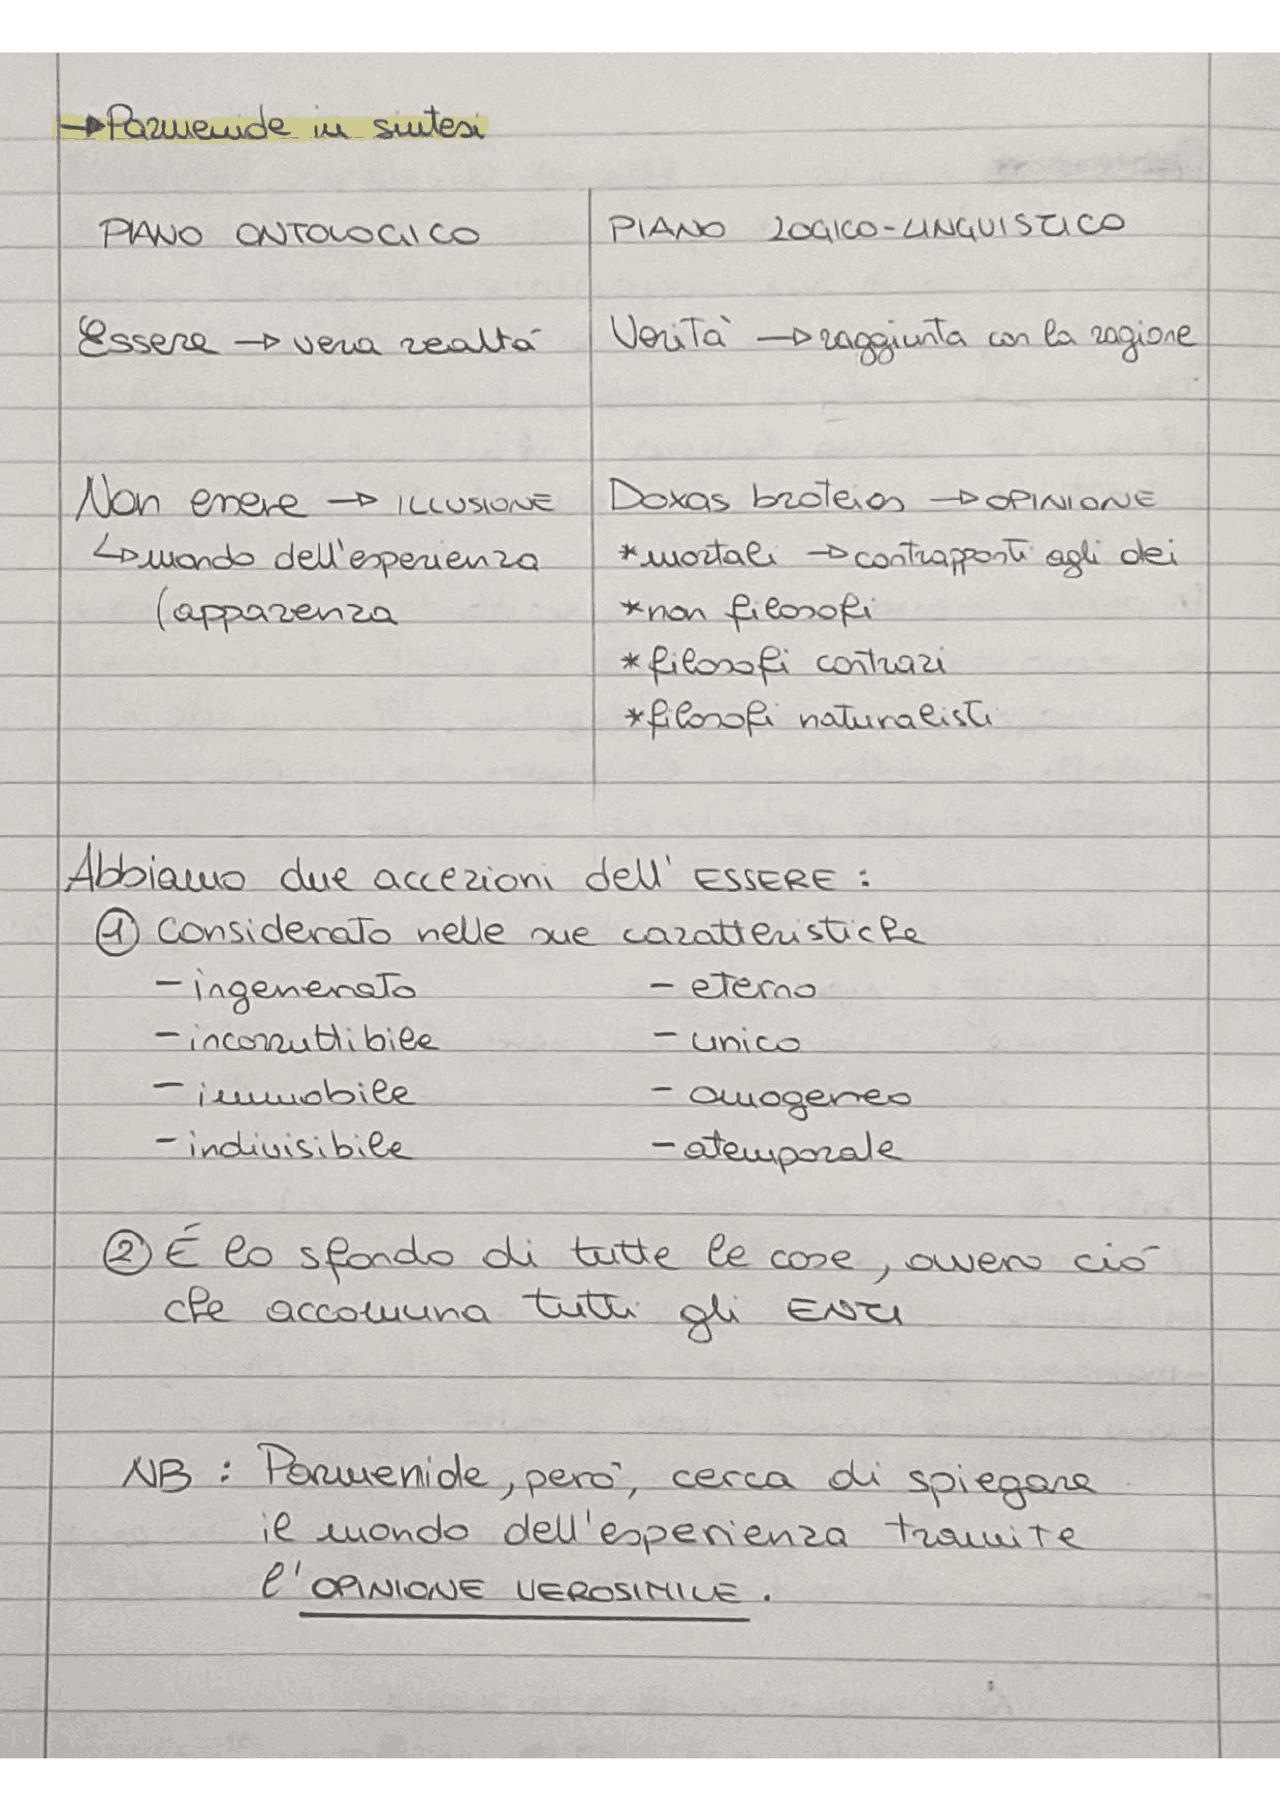 →Parmenide in sintesi
PIANO ONTOLOGICO
PIANO LOGICO-LINGUISTICO
Essere → vera realtá
Verità → raggiunta con la ragione
Non essere → ILLUSIONE
↳mondo dell'esperienza
(apparenza
Doxas broteias → OPINIONE
*mortali → contrapposti agli dei
*non filosofi
*filosofi contrari
*filosofi naturalisti
Abbiamo due accezioni dell' ESSERE :
① Considerato nelle sue caratteristiche
- ingenerato - eterno
- incorruttibile - unico
- immobile - omogeneo
- indivisibile - atemporale
② É lo sfondo di tutte le cose, ovvero ció
che accomuna tutti gli ENTI
NB : Parmenide, peró, cerca di spiegare
il mondo dell'esperienza tramite
l'OPINIONE VEROSIMILE .